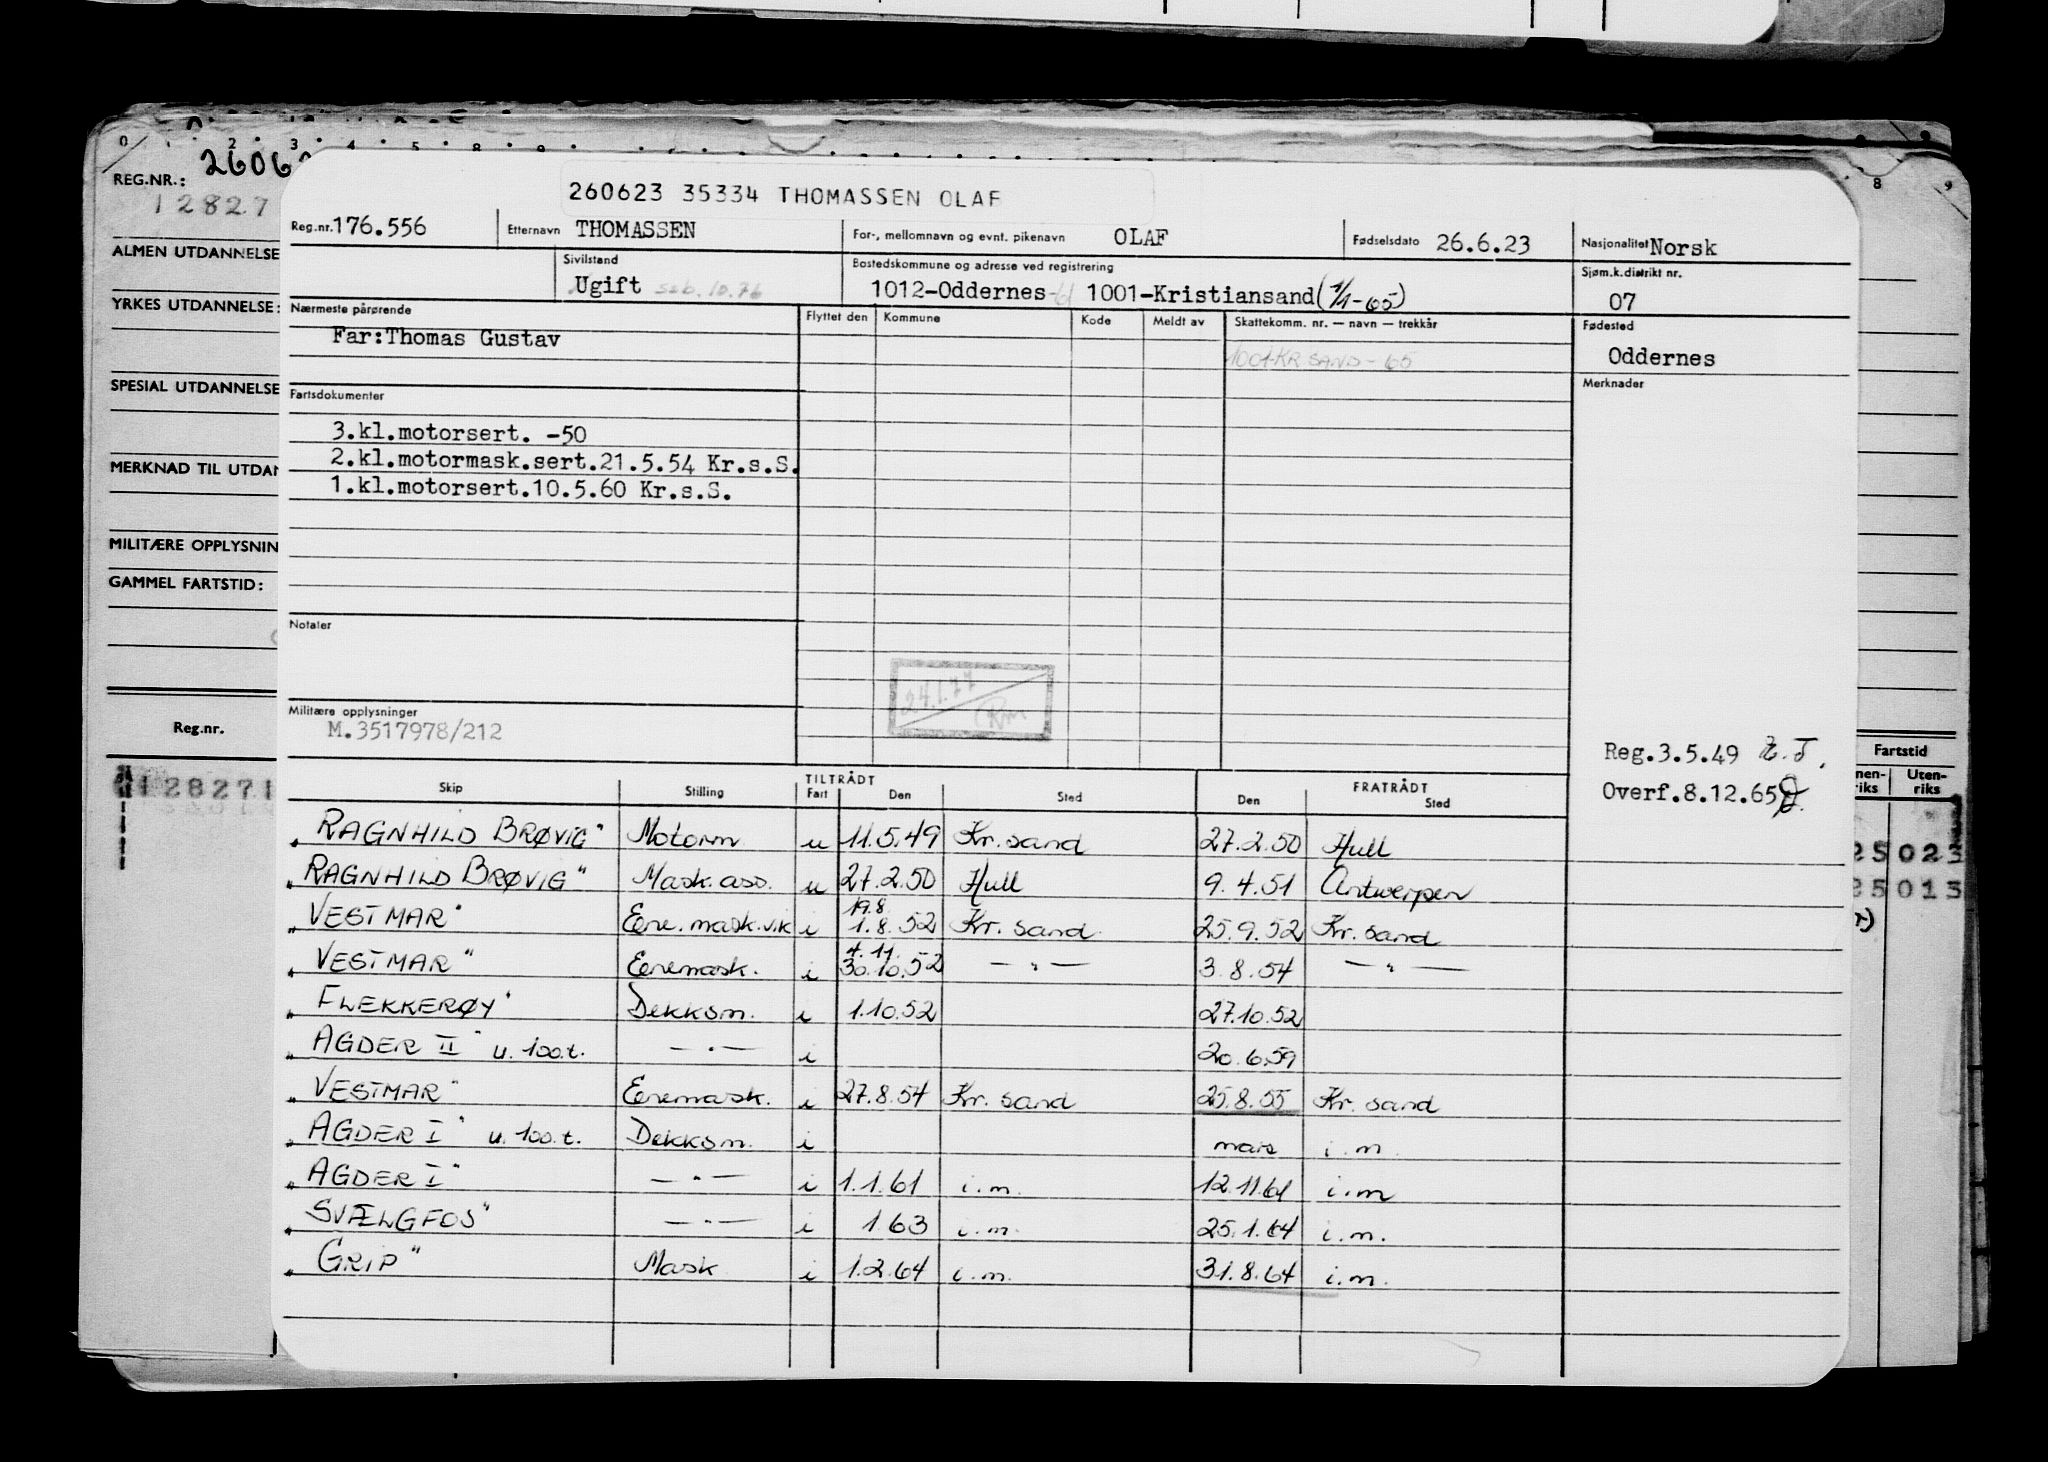 0 2 3 4 5 8 9 8 9
REG.NR.: 2606
12827
ALMEN UTDANNELSE
YRKES UTDANNELSE:
SPESIAL UTDANNELSE
MERKNAD TIL UTDAN
MILITÆRE OPPLYSNIN
GAMMEL FARTSTID:
Reg.nr.
128271
260623 35334 THOMASSEN OLAF
Reg.nr. 176.556 Etternavn THOMASSEN For-, mellomnavn og evnt. pikenavn OLAF Fødselsdato 26.6.23 Nasjonalitet Norsk
Sivilstand Ugift Bostedskommune og adresse ved registrering 1012-Oddernes 1001-Kristiansand (1/1-65) Sjøm.k.distrikt nr. 07
Nærmeste pårørende Flyttet den Kommune Kode Meldt av Skattekomm. nr. — navn — trekkår Fødested
Far:Thomas Gustav 1001-KR SAND-65 Oddernes
Fartsdokumenter Merknader
3.kl.motorsert. -50
2.kl.motormask.sert.21.5.54 Kr.s.S.
1.kl.motorsert.10.5.60 Kr.s.S.
Notater
24.1.77
Rm
Militære opplysninger
M.3517978/212
Reg.3.5.49
Overf.8.12.65
TILTRÅDT FRATRÅDT
Skip Stilling Fart Den Sted Den Sted
„RAGNHILD BRØVIG" Motorm u 11.5.49 Kr.sand 27.2.50 Hull
„RAGNHILD BRØVIG" Mask.ass. u 27.2.50 Hull 9.4.51 Antwerpen
19.8
„VESTMAR" Ene.mask.vik i 1.8.52 Kr.sand 25.9.52 Kr.sand
4.11.
„VESTMAR" Enemask. i 30.10.52 —"— 3.8.54 —"—
„FLEKKERØY" Dekksm. i 1.10.52 27.10.52
„AGDER II" u.100.t. —"— i 20.6.59
„VESTMAR" Enemask. i 27.8.54 Kr.sand 25.8.55 Kr.sand
„AGDER I" u.100.t. Dekksm. i mars i.m
„AGDER I" —"— i 1.1.61 i.m. 12.11.61 i.m
„SVÆLGFOS" —"— i 1.63 i.m. 25.1.64 i.m.
„GRIP" Mask i 1.2.64 i.m. 31.8.64 i.m.
Fartstid
nen-riks Uten-riks
25 023
25 013